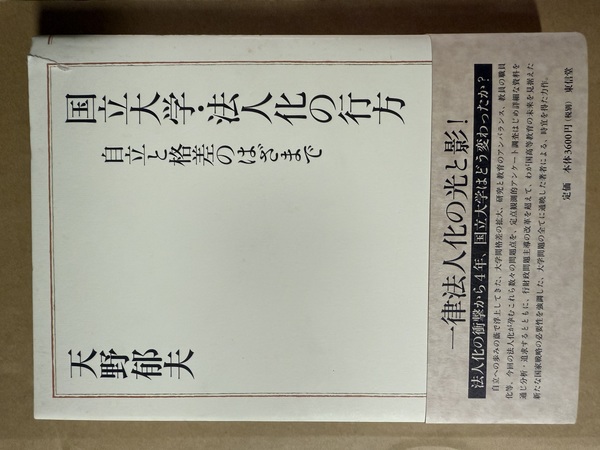 国立大学・法人化の行方
自立と格差のはざまで
天野郁夫
一律法人化の光と影!
法人化の衝撃から4年、国立大学はどう変わったか?
自立への歩みの蔭で浮上してきた、大学間格差の拡大、研究と教育のアンバランス、教員の職員
化等、今回の法人化が孕むこれら数々の問題点を、定点観測的アンケート調査はじめ詳細な資料を
通じ分析・追求するとともに、行財政問題主導の改革を超えて、わが国高等教育の未来を見据えた
新たな国家戦略の必要性を強調した、大学問題の全てに通暁した著者による、時宜を得た力作。
定価 本体3600円(税別) 東信堂